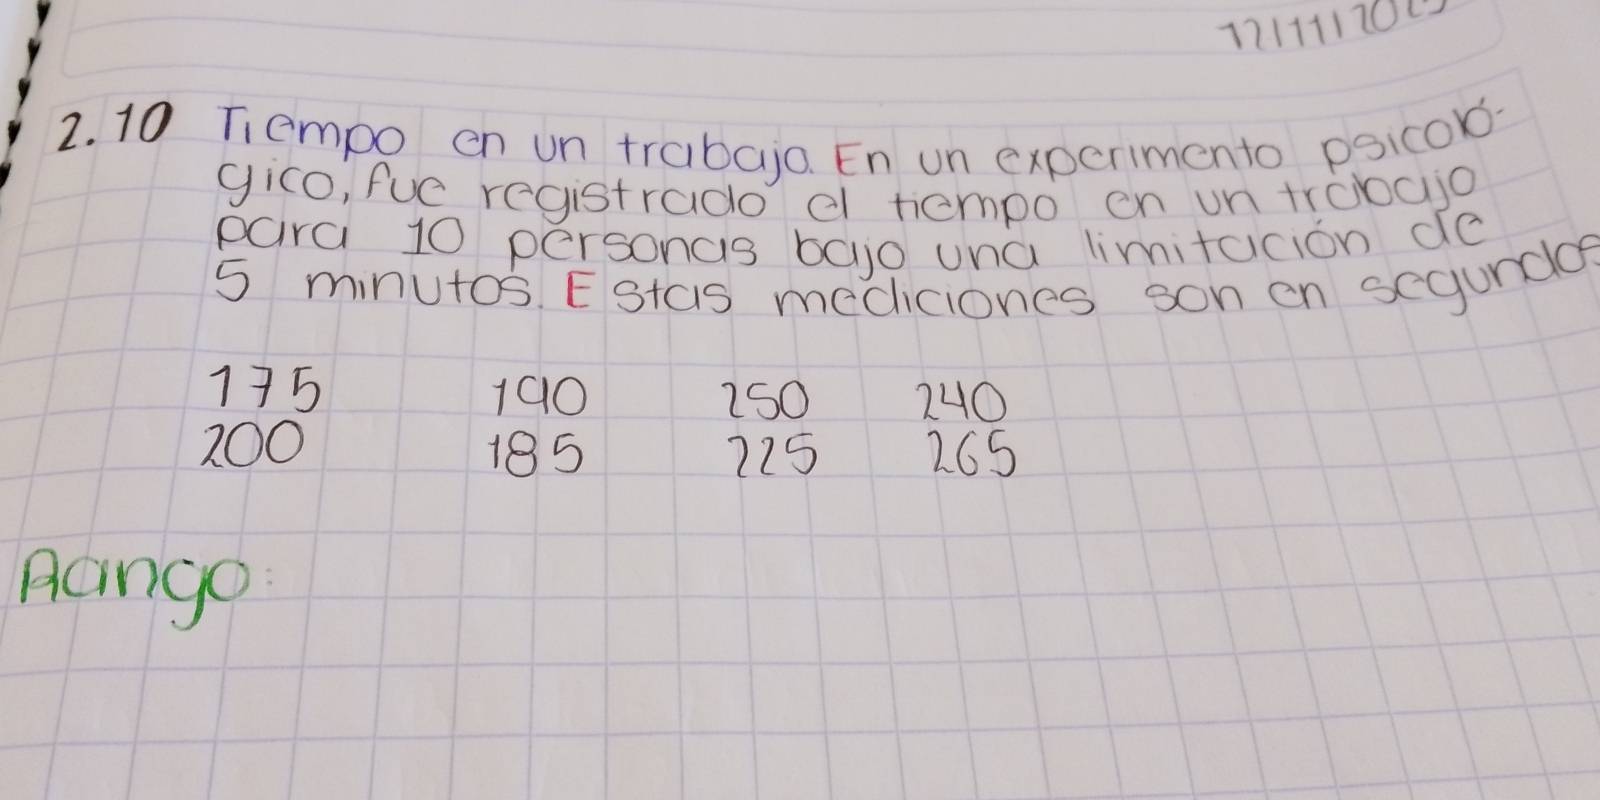 2.10 Tiempo en un trabajo. En un experimento psicoló-
gico, fue registrado el tiempo en un trabajo
para 10 personas bajo una limitación de
5 minutos. Estas mediciones son en segundos
175 190 250 240
200 185 225 265
Rango: